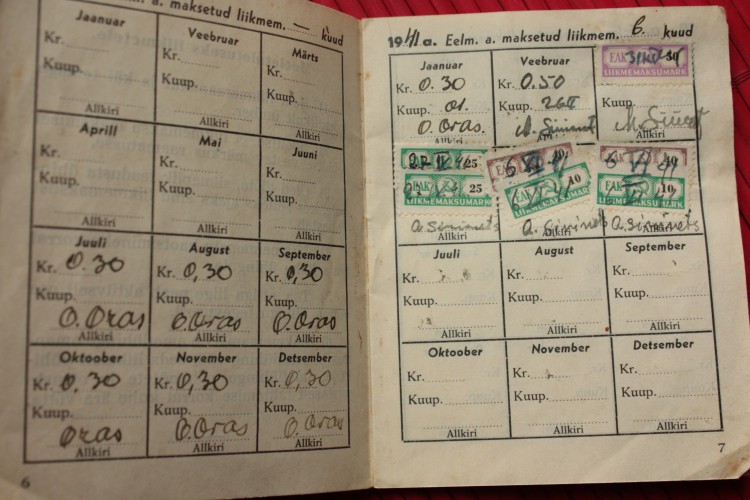 m. a. maksetud liikmem. — kuud
Jaanuar Veebruar Märts
Kr. Kr. Kr.
Kuup. Kuup. Kuup.
Allkiri Allkiri Allkiri
Aprill Mai Juuni
Kr. Kr. Kr.
Kuup. Kuup. Kuup.
Allkiri Allkiri Allkiri
Juuli August September
Kr. 0.30 Kr. 0,30 Kr. 0,30
Kuup. Kuup. Kuup.
O. Oras O. Oras O. Oras
Allkiri Allkiri Allkiri
Oktoober November Detsember
Kr. 0.30 Kr. 0,30 Kr. 0,30
Kuup. Kuup. Kuup.
Oras O. Oras O. Oras
Allkiri Allkiri Allkiri
6
1941 a. Eelm. a. maksetud liikmem. 6. kuud
Jaanuar Veebruar
EAK 50
LIIKMEMAKSUMARK
Kr. 0.30 Kr. 0.50
Kuup. 01. Kuup. 26 II Kuup.
O. Oras
Allkiri Allkiri Allkiri
25 40 40
EAK 25 EAK 10 EAK 10
LIIKMEMAKSUMARK LIIKMEMAKSUMARK LIIKMEMAKSUMARK
A. Sininets A. Sininets A. Sininets
Allkiri Allkiri Allkiri
Juuli August September
Kr. Kr. Kr.
Kuup. Kuup. Kuup.
Allkiri Allkiri Allkiri
Oktoober November Detsember
Kr. Kr. Kr.
Kuup. Kuup. Kuup.
Allkiri Allkiri Allkiri
7